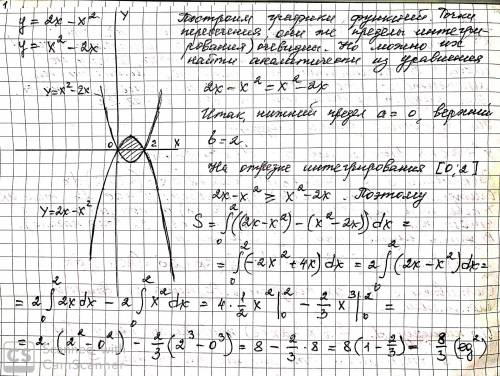 1
y = 2x - x²
y = x² - 2x
Построим графики функций. Точки
пересечения, они же пределы интегри-
рования очевидны. Но можно их
найти аналитически из уравнения
2x - x² = x² - 2x
Итак, нижний предел a = 0, верхний
b = 2.
На отрезке интегрирования [0; 2]
2x - x² ⩾ x² - 2x. Поэтому
Y
y = x² - 2x
0
2
X
y = 2x - x²
S = ∫₀² ((2x - x²) - (x² - 2x)) dx =
= ∫₀² (-2x² + 4x) dx = 2 ∫₀² (2x - x²) dx =
= 2 ∫₀² 2x dx - 2 ∫₀² x² dx = 4 · 1/2 x² |₀² - 2/3 x³ |₀² =
= 2 · (2² - 0²) - 2/3 (2³ - 0³) = 8 - 2/3 · 8 = 8(1 - 2/3) = 8/3 (ед²)
CS
CamScanner